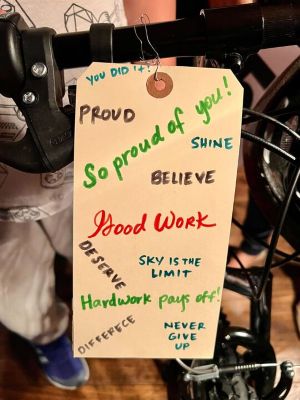 YOU DID it!
PROUD
So proud of you!
SHINE
BELIEVE
Good Work
DESERVE
SKY IS THE
LIMIT
Hardwork pays off!
DIFFERECE
NEVER
GIVE
UP